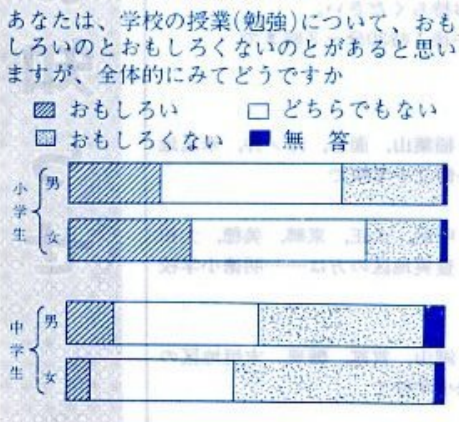 あなたは、学校の授業(勉強)について、おも
しろいのとおもしろくないのとがあると思い
ますが、全体的にみてどうですか
おもしろい どちらでもない
おもしろくない 無 答
小学生
男
女
中学生
男
女